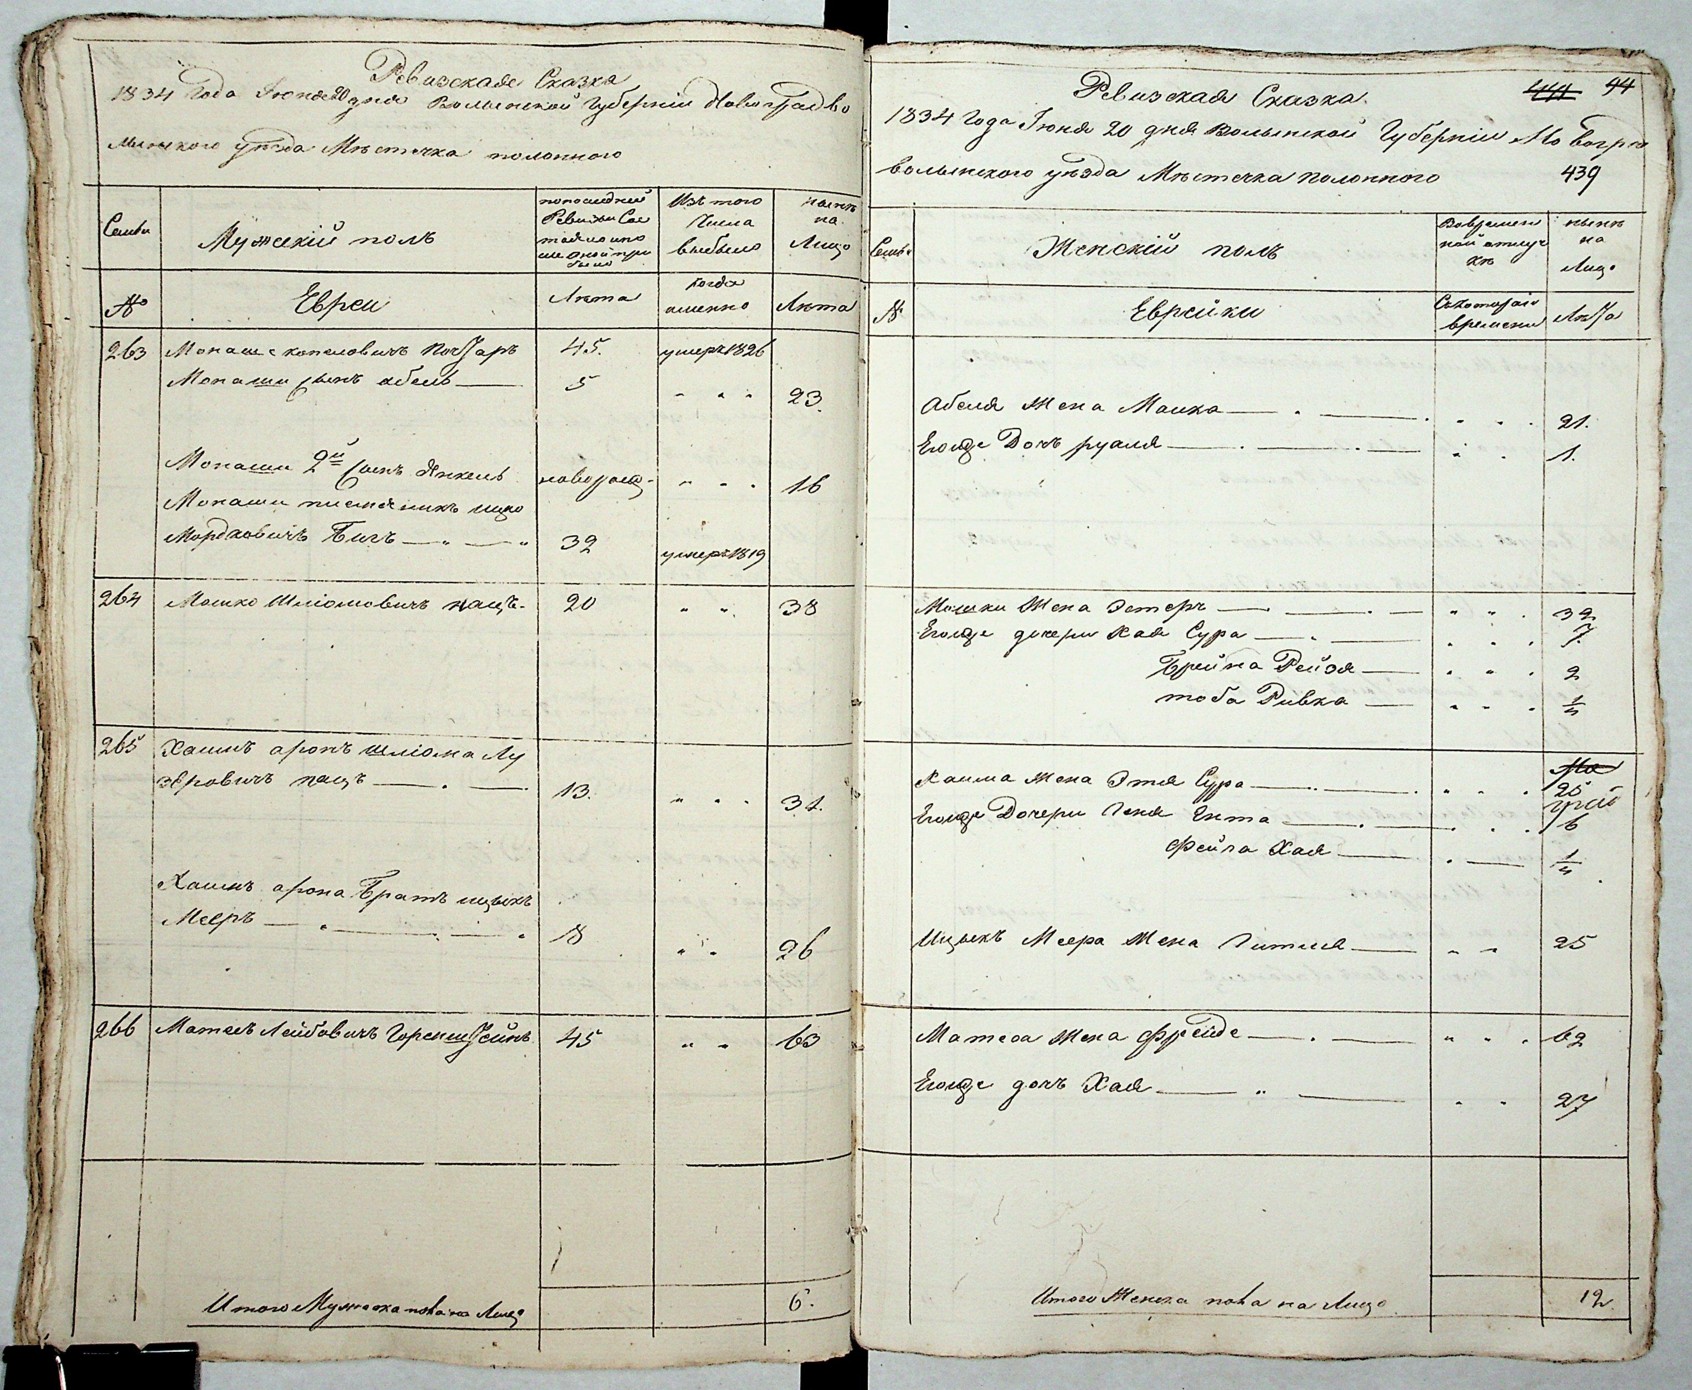 Ревизская Сказка
1834 Года Іюня 20 дня Волынской Губерніи Новоградво
лынского уѣзда Мѣстечка полонного
Семьи
Мужескій полъ
попоследней Ревизіи Сос тояло ипо сле оной при было
Изъ того Числа выбыло
нынѣ на Лицо
№
Евреи
Лѣта
когда именно
Лѣта
263 Монашъ копеловичъ 45. умеръ 1826
Монаши сынъ абель 5 " " " 23.
Монаши 2й Сынъ Янкель новорож. " " " 16
Монаши племяникъ ицко
Мордковичъ 32 умеръ 1819
264 Мошко Шліомовичъ пацъ. 20 " " 38
265 Хаимъ аронъ шліома Лу
зеровичъ пацъ 13. " " " 31.
Хаимъ арона Братъ ицыкъ
Мееръ 18 " " 26
266 Матесъ Лейбовичъ Горенштейнъ 45 " " 63
Итого Мужеска пола на Лицо 6.
Ревизская Сказка 44
1834 Года Іюня 20 дня Волынской Губерніи Новогра
волынского уѣзда Мѣстечка Полонного 439
Семьи
Женскій полъ
Вовремен ной отлуч кѣ
нынѣ на Лицо
№
Еврейки
Скотораго времени
Лѣта
Абеля Жена Малка " " " 21.
Егожде Дочъ руаля " " 1.
Мошки Жена Эстеръ " " " 32
Егожде дочери Хая Сура " " " 7.
Брейна Рейзя " " " 2
тоба Ривка " " " 1/4
Хаима Жена Этя Сура " " " 25
Егожде Дочери Геня Ента " " 6
Фейга Хая " 1/4
Ицыкъ Меера Жена Гитля " " 25
Матеса Жена Фрейде " " " 62
Егожде дочъ Хая " " 27
Итого Женска пола на Лицо 12.